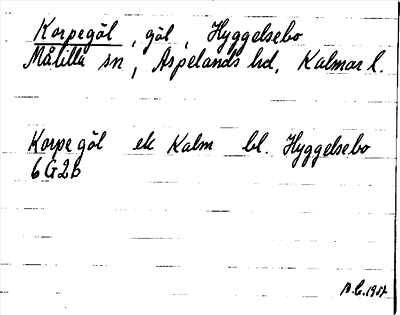 Korpegöl, göl, Hyggelsebo
Målilla sn, Aspelands hd, Kalmar l.
Korpegöl ek Kalm bl. Hyggelsebo
6G2b